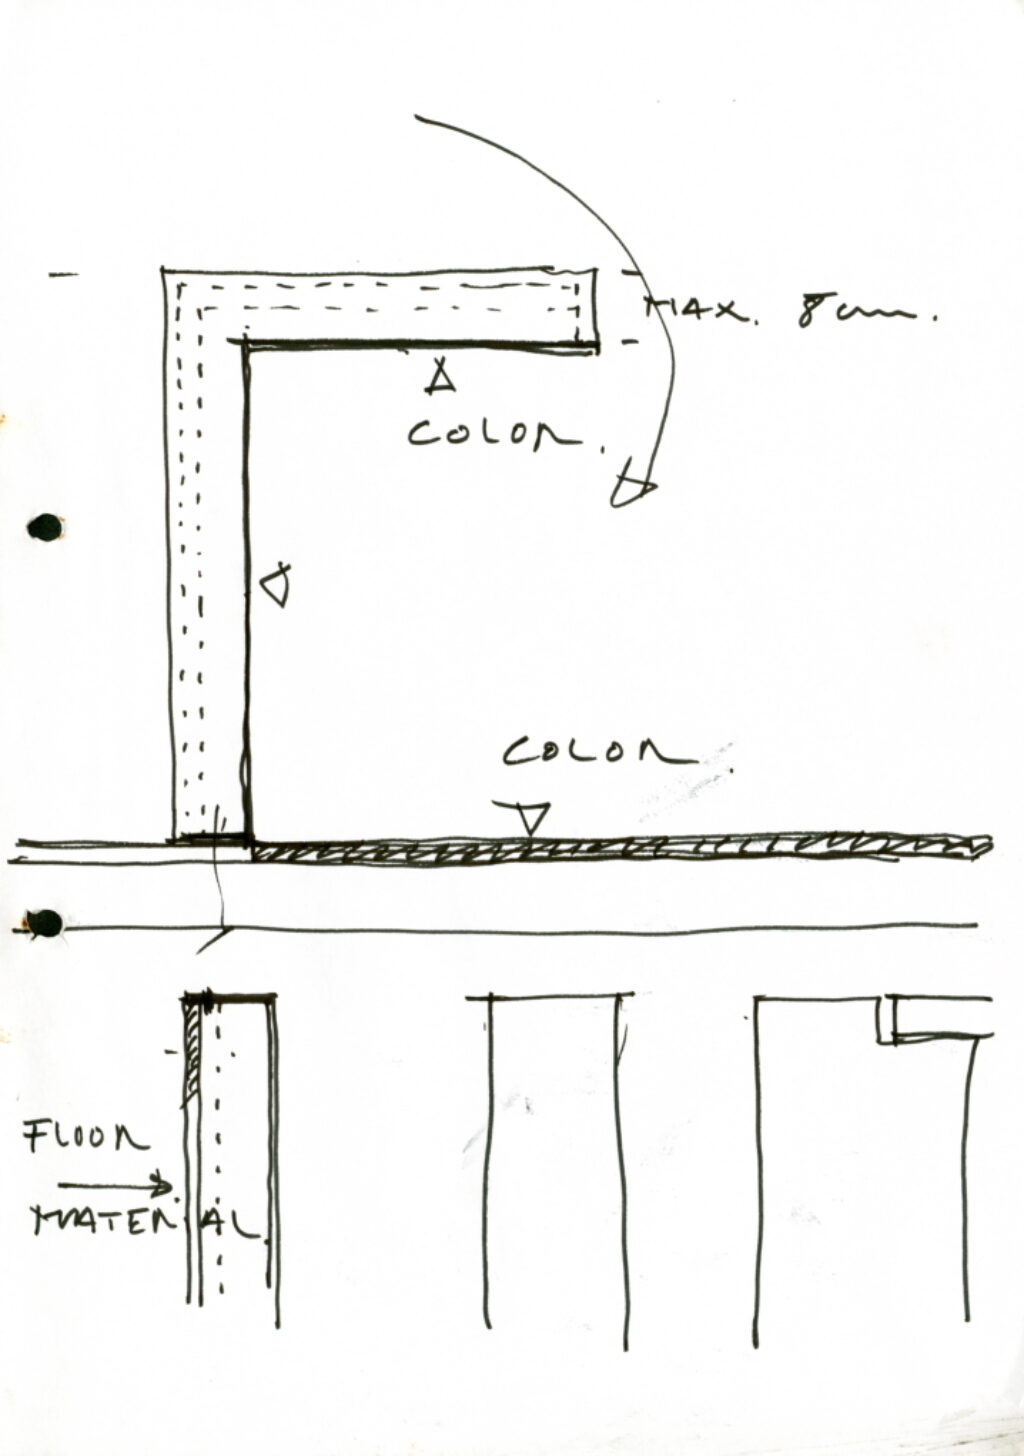 MAX. 8cm.
COLOR.
COLOR.
FLOOR
MATERIAL.